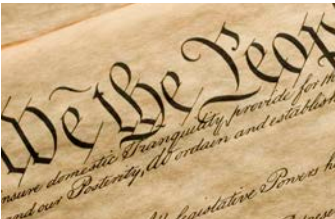 We the Peop
nsure domestic Tranquility, provide for th
and our Posterity, do ordain and establish
Legislative Powers h